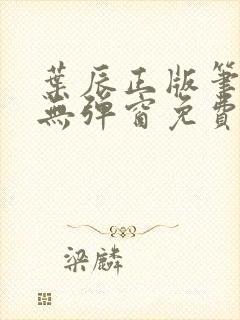 葉辰正版筆
無彈窗免費
梁麟